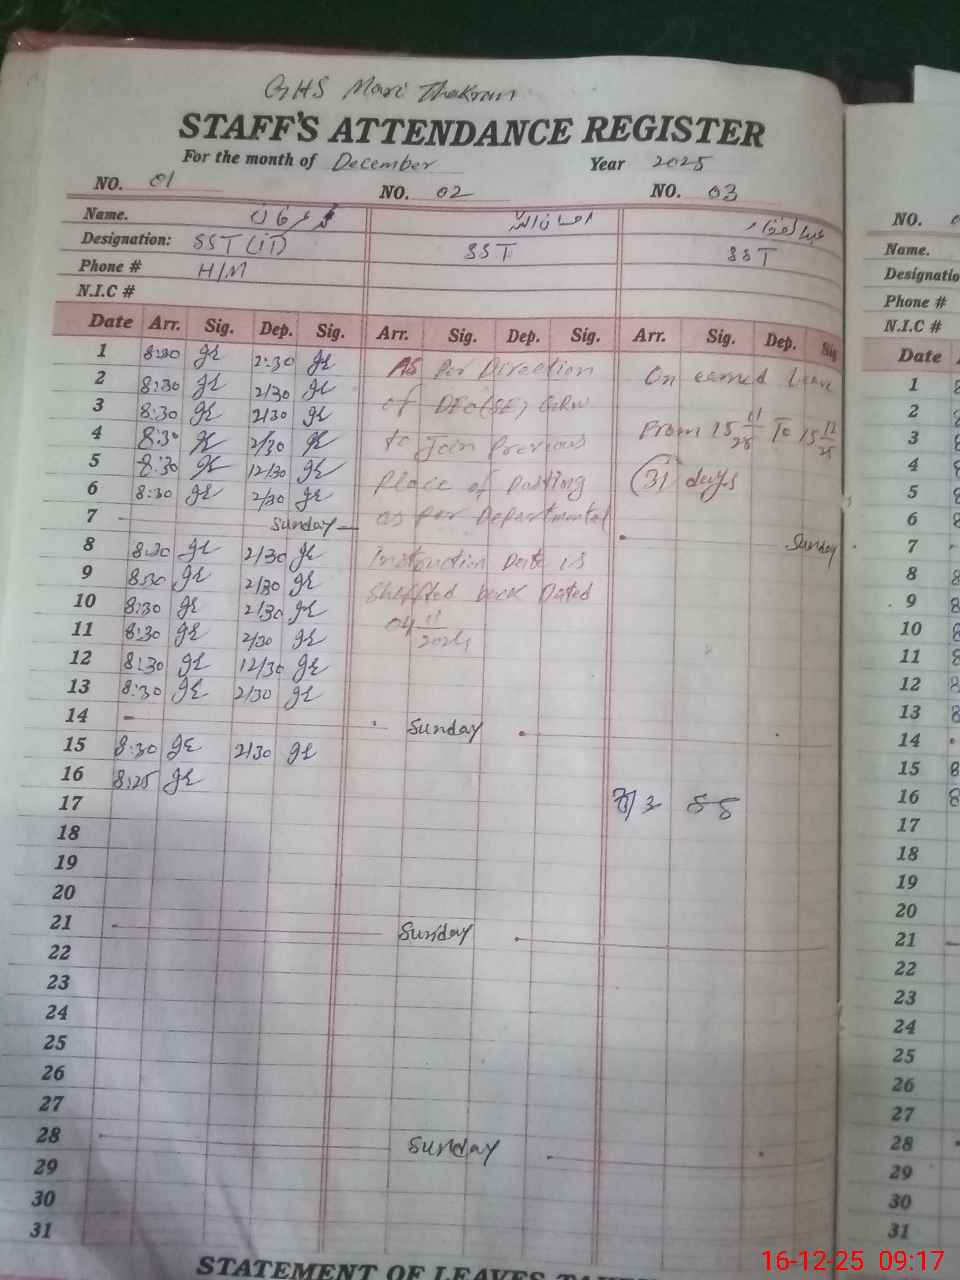 GHS Mari Thakran
STAFF'S ATTENDANCE REGISTER
For the month of December Year 2025
NO. 01 NO. 02 NO. 03 NO.
Name. عرفان احسان اللہ عبدالغفار Name.
Designation: SST (IT) SST SST Designatio
Phone # H/M Phone #
N.I.C # N.I.C #
Date Arr. Sig. Dep. Sig. Arr. Sig. Dep. Sig. Arr. Sig. Dep. Sig Date
1 8:30 2:30 As Per Direction On earned Leave 1 8
2 8:30 2/30 of DEO(SE) GRW 2 8
3 8:30 2/30 From 15 11 To 15 12 25 3 8
4 8:30 2/30 to Join Previous 4 8
5 8:30 12/30 Place of Posting (31) days 5 8
6 8:30 2/30 as per Departmental 6 8
7 Sunday Sunday 7
8 8:30 2/30 Instruction Date is 8 8
9 8:30 2/30 Sheffted back Dated 9 8
10 8:30 2/30 04 11 2024 10 8
11 8:30 2/30 11 8
12 8:30 12/30 12 8
13 8:30 2/30 13 8
14 Sunday 14
15 8:30 2/30 15 8
16 8:25 16 8
17 17
18 18
19 19
20 20
21 Sunday 21
22 22
23 23
24 24
25 25
26 26
27 27
28 Sunday 28
29 29
30 30
31 31
STATEMENT OF LEAVES
16-12-25 09:17